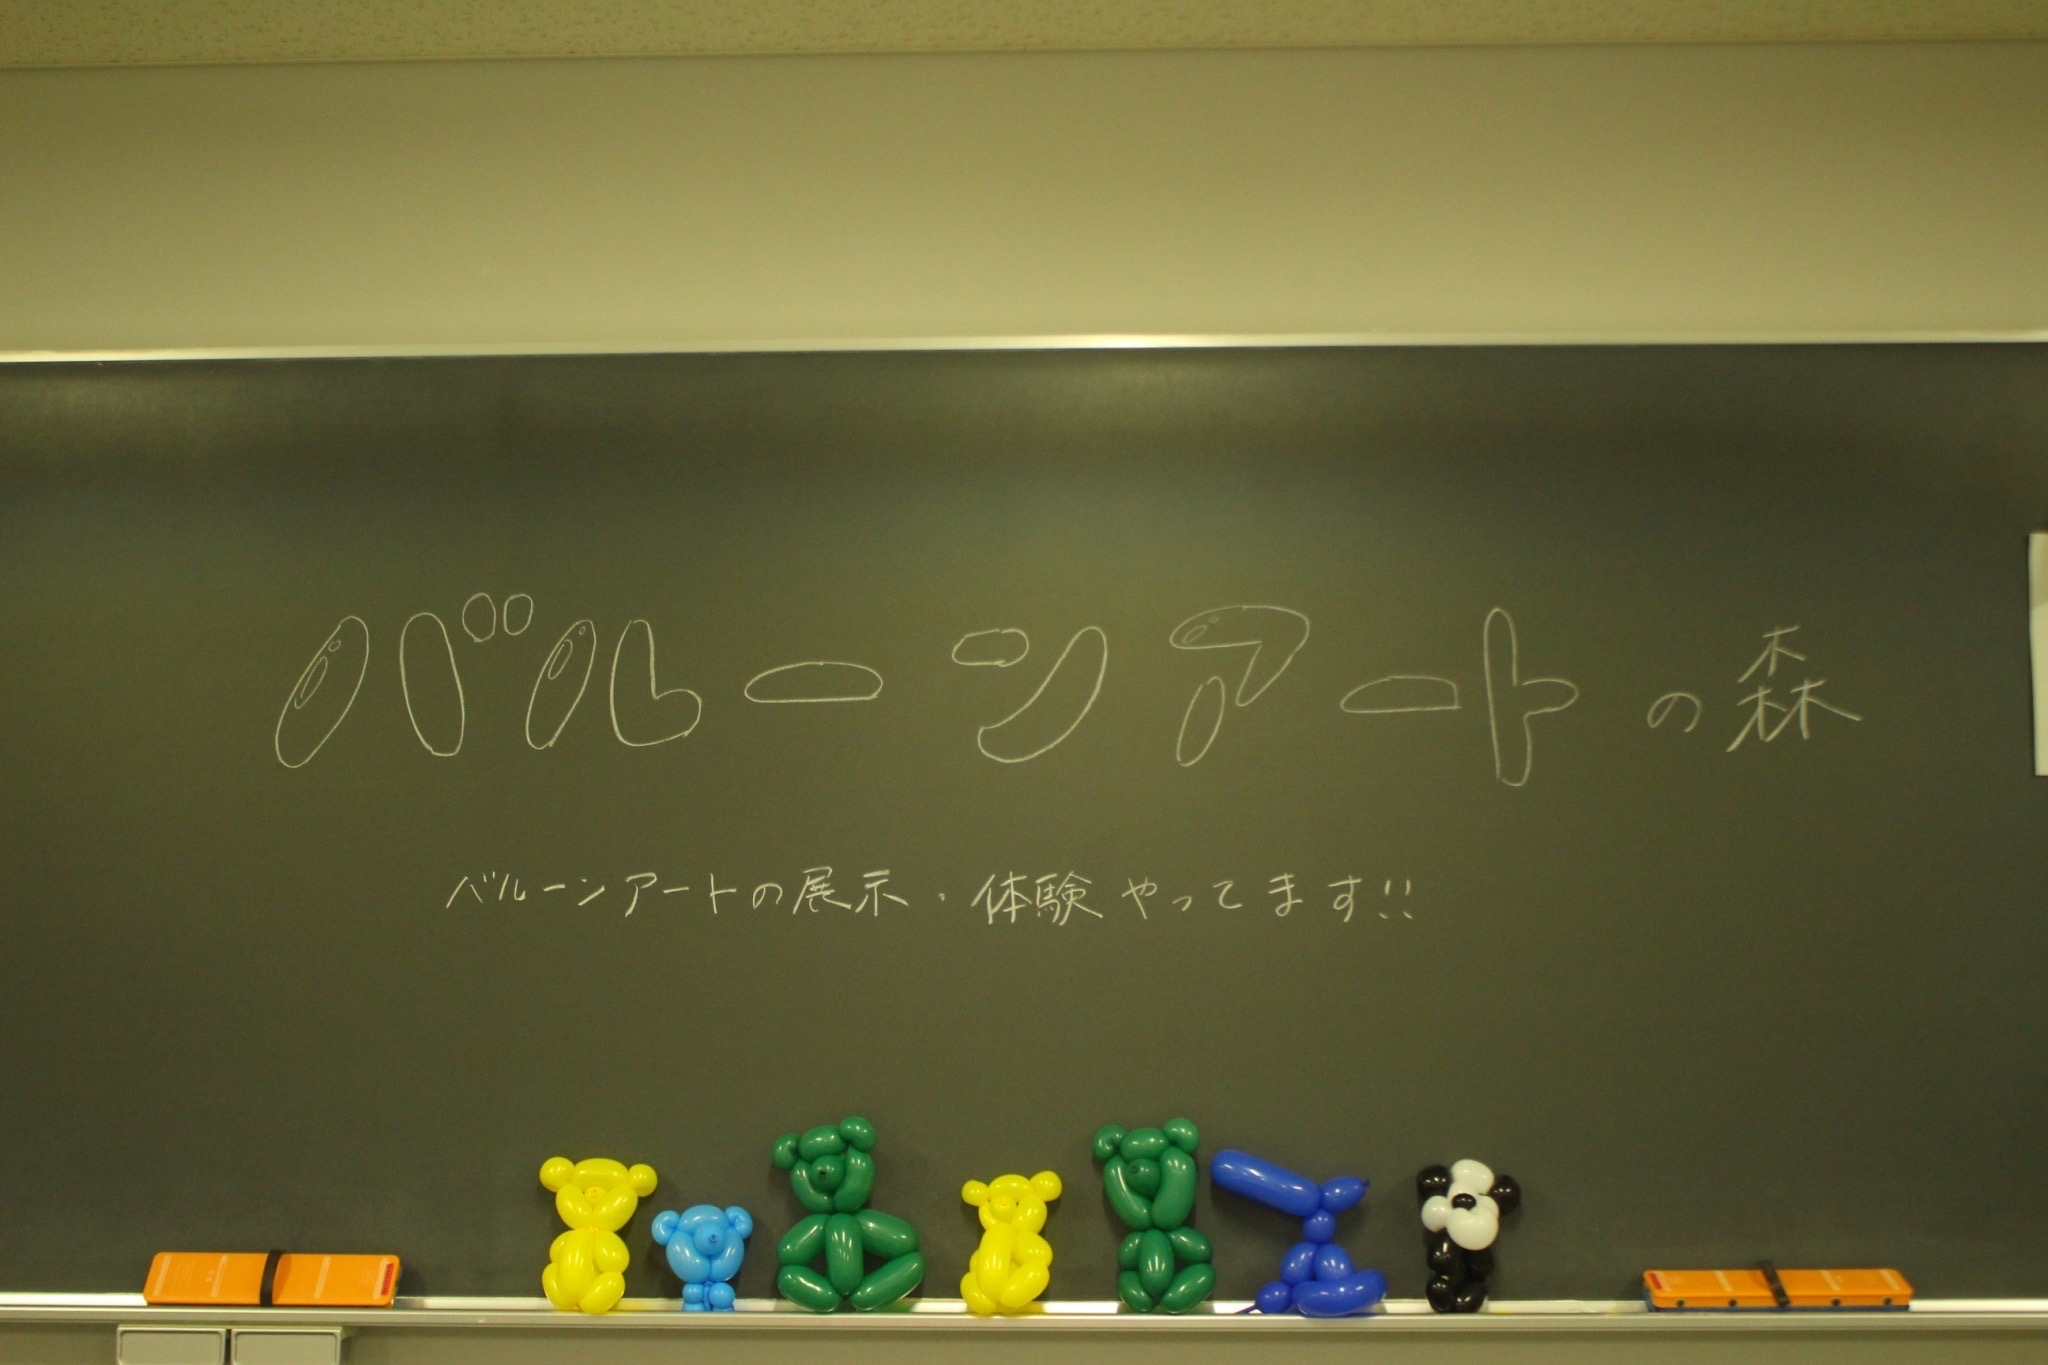 バルーンアートの森
バルーンアートの展示・体験やってます!!